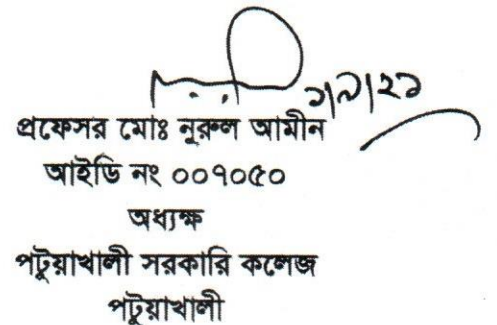 ১/৯/২১
প্রফেসর মোঃ নুরুল আমীন
আইডি নং ০০৭০৫০
অধ্যক্ষ
পটুয়াখালী সরকারি কলেজ
পটুয়াখালী